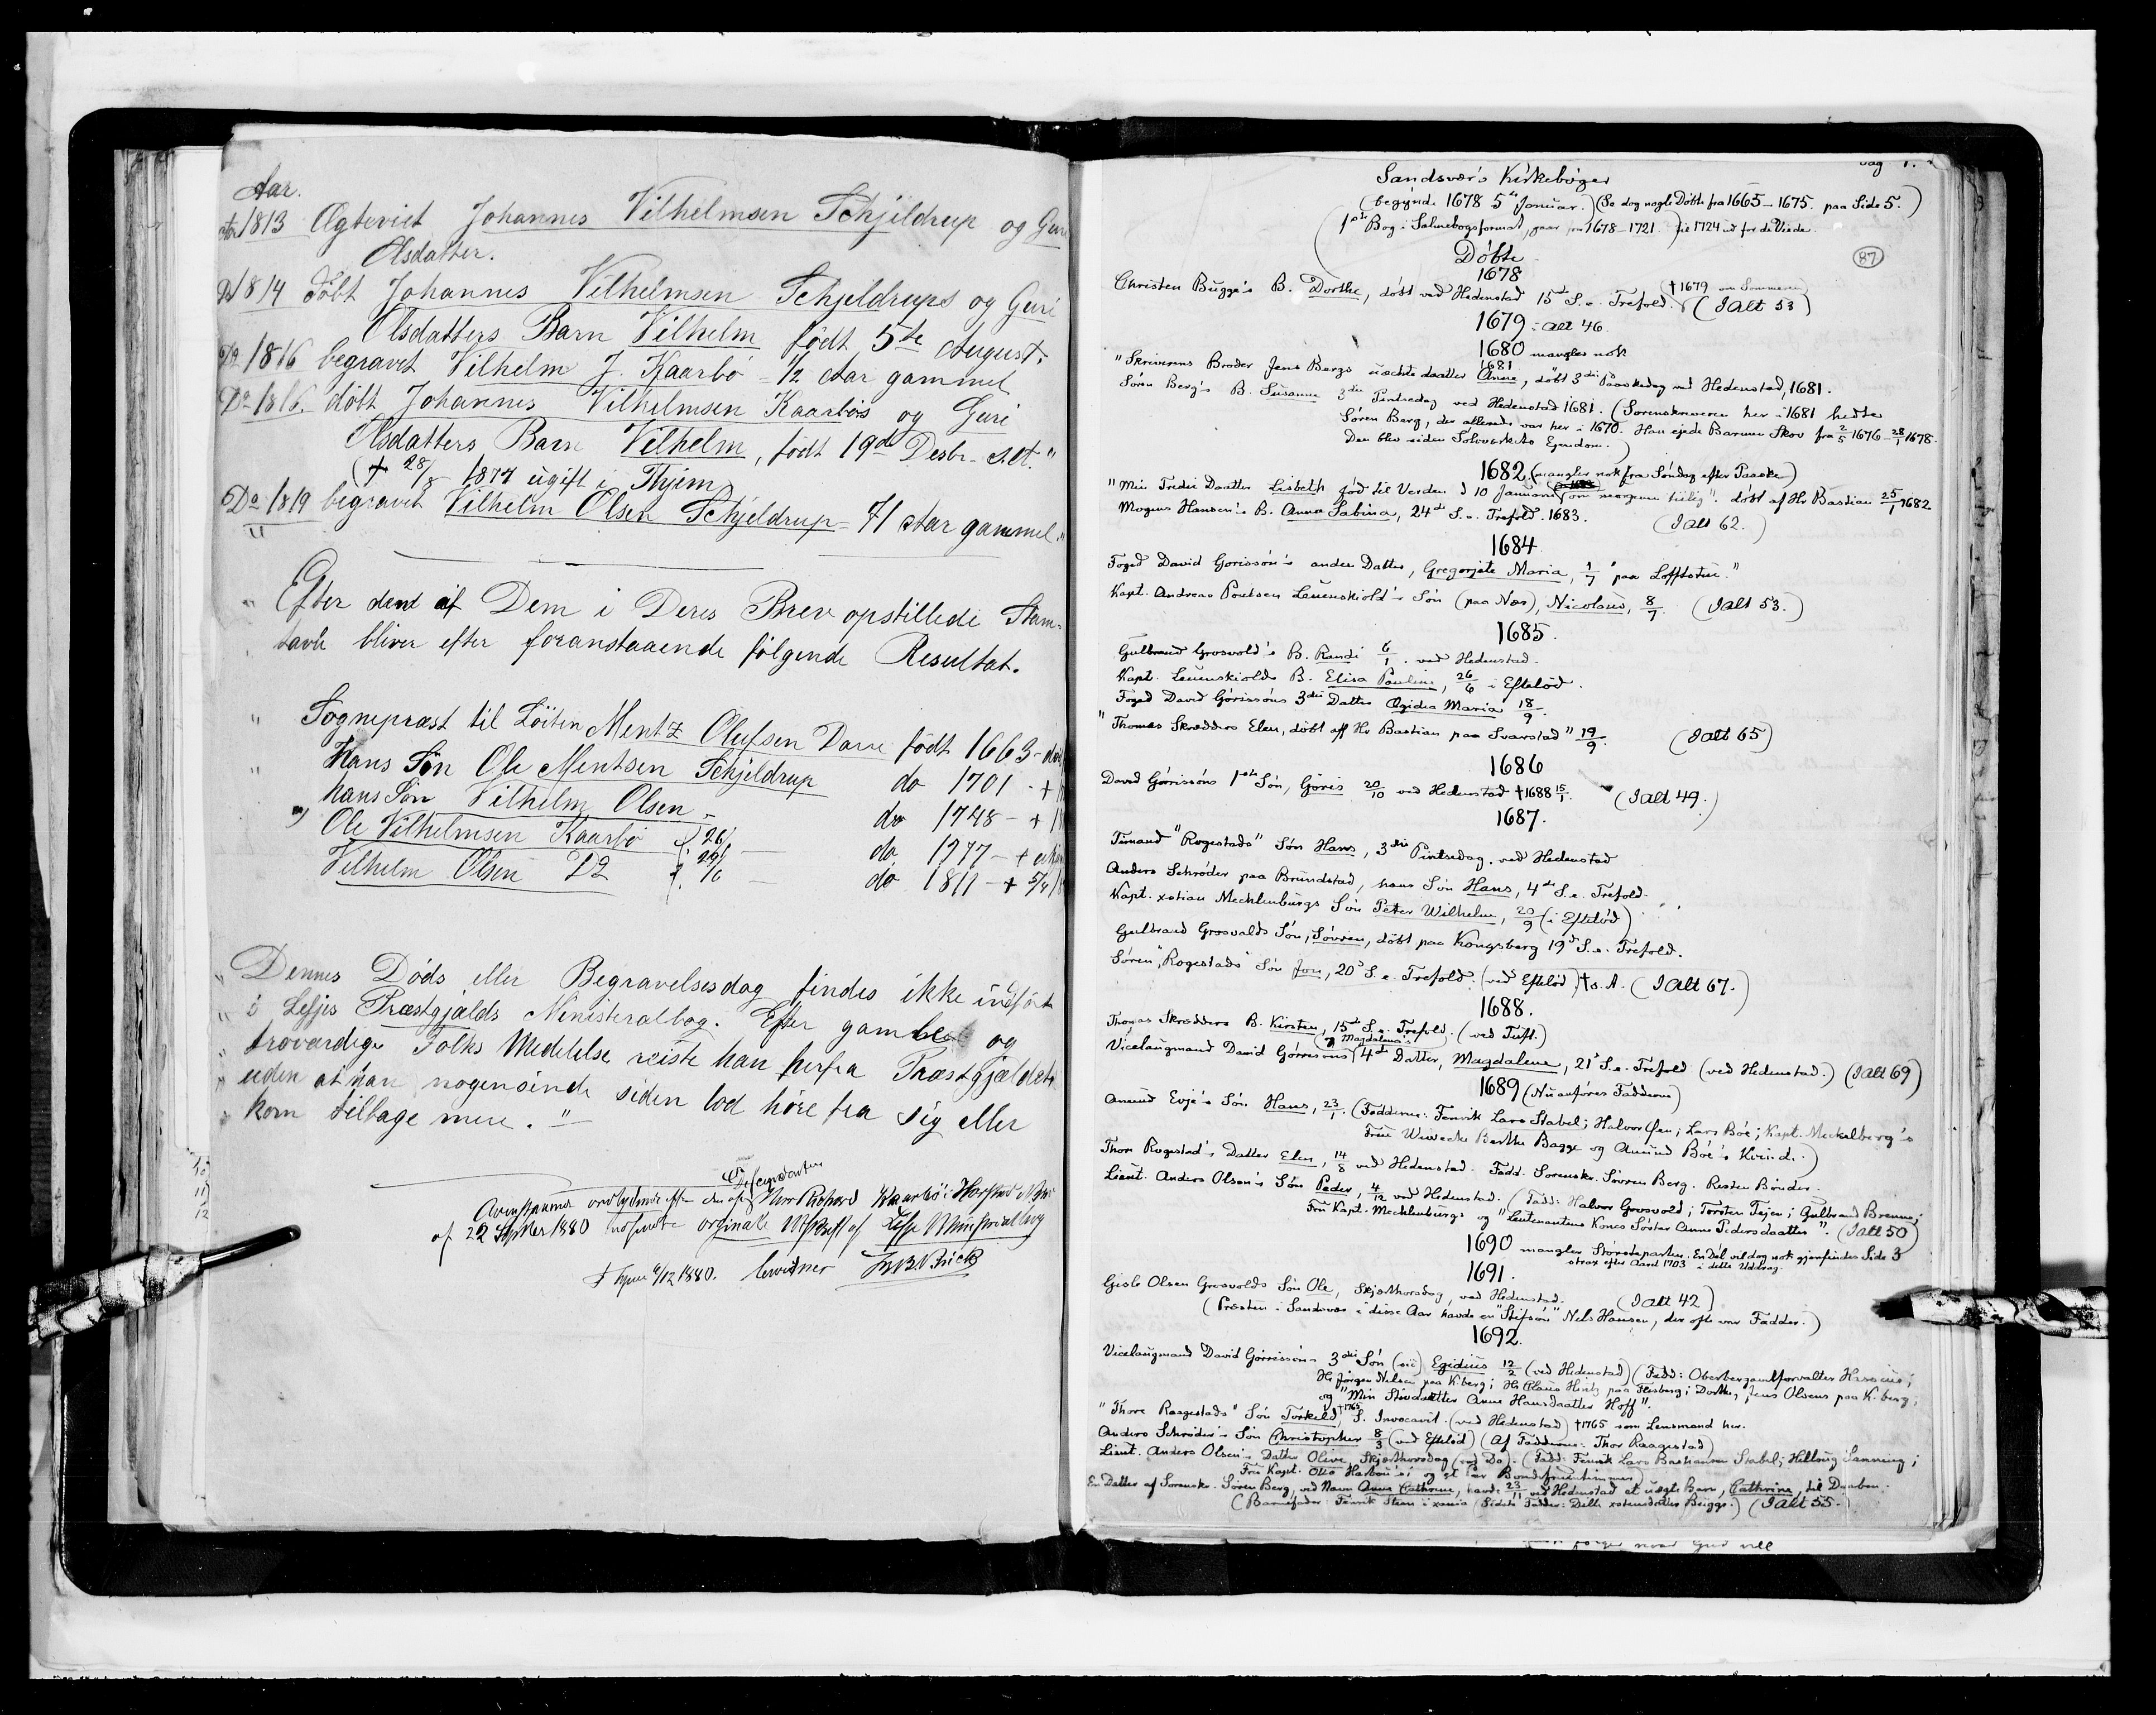 Aar.
1813 Ægteviet Johannes Vilhelmsen Schjeldrup og Guri
Olsdatter.
Do 1814 døbt Johannes Vilhelmsen Schjeldrups og Guri
Olsdatters Barn Vilhelm født 5te August.
Do 1816 begravet Vilhelm J. Kaarbø - 1/2 Aar gammel
Do 1816. døbt Johannes Vilhelmsen Kaarbøs og Guri
Olsdatters Barn Vilhelm, født 19de Desbr.
(† 28/8 1877 ugift i Thjem
Do 1819 begravet Vilhelm Olsen Schjeldrup - 71 Aar gammel."
Efter dem af Dem i Deres Brev opstillede Stam-
tavle bliver efter foranstaaende følgende Resultat.
Sognepræst til Løiten Mentz Olufsen Darre født 1663 -
Hans Søn Ole Mentsen Schjeldrup do 1701 - +
hans Søn Vilhelm Olsen - do 1748 - +
Ole Vilhelmsen Kaarbø (26/ - do 1777 - +
Vilhelm Olsen Do 29/6 - do 1811 - + 5/4
" Dennes Døds eller Begravelsesdag findes ikke indført
" i Lesjes Præstgjælds Ministeralbog. Efter gamle og
" troværdige Folks Meddelelse reiste han herfra Præstgjældet
" uden at han nogensinde siden lod høre fra sig eller
" kom tilbage mere. "
Descendenten
af 22 Septber 1880 originale Udskrift af Lesje Ministrialbog
6/12 1880. bevidner
Sandsvær's Kirkebøger
(begynde 1678 5te Januar.) (Se dog nogle Døbte fra 1665 - 1675. paa Side 5.)
(1ste Bog i Salmebogsformat, gaar fra 1678 - 1721.) til 1724 ud for de Viede.
Døbte
87
1678
†1679 om Sommeren
Christen Bugge's B. Dorthe, døbt ved Hedenstad 15de S. e. Trefold. (Ialt 53)
1679: alt 46.
1680 mangler nok
1681
"Skriverens Broder Jens Bergs uæchte daatter Anne, døbt 3die Paaskedag ved Hedenstad, 1681.
Søren Berg's B. Susanne 3die Pintsedag ved Hedenstad 1681. (Sorenskriveren her i 1681 hedte
Søren Berg, der allerede var her i 1670. Han ejede Barmen Skov fra 2/5 1676 - 28/1 1678.
Den blev siden Sølvværkets Egendom.)
1682. (mangler nok fra Søndag efter Paaske)
"Min Fredie Daatter Lisbeth fød til Verden d 10 Januarii om morgenen tidlig". døbt af Hr Bastian 25/1 1682
Mogens Hansen's B. Anna Sabina, 24de S. e. Trefold. 1683. (Ialt 62.)
1684
Foged David Gørissøn's anden Datter, Gregorjete Maria, 1/7 "paa Lofftstue."
Kapt. Andreas Poulsen Leuenskiold's Søn (paa Næs), Nicolaus, 8/7. (Ialt 53.)
1685.
Gulbrand Grosvold's B. Randi 6/1. ved Hedenstad.
Kapt. Leuenskiolds B. Elisa Pauline, 26/6 i Efteløt.
Foged David Gørissøns 3die Datter Ægidia Maria 18/9.
"Thomas Skrædders Elen, døbt aff Hr Bastian paa Svarstad" 19/9. (Ialt 65)
1686
David Gørrissøns 1ste Søn, Gøris 20/10 ved Hedenstad †1688 15/1. (Ialt 49.)
1687.
Timand "Rogestads" Søn Hans, 3die Pintsedag. ved Hedenstad
Anders Schrøder paa Brunstad, hans Søn Hans, 4de S. e. Trefold.
Kapt. xstian Mechlenburgs Søn Peter Wilhelm, 20/9 (i Efteløt)
Gulbrand Grosvolds Søn, Søvren, døbt paa Kongsberg 19d S. e. Trefold.
Søren "Rogestads" Søn Jon, 20d S. e. Trefold. (ved Efteløt) †s. A. (Ialt 67.)
1688.
Thomas Skrædders B. Kirsten, 15de S. e. Trefold. (ved Tuft.)
(? Magdalena's)
Vicelaugmand David Gørrissøns 4de Datter, Magdalene, 21d S. e. Trefold (ved Hedenstad.) (Ialt 69)
1689 (Nu anføres Faddere)
Amund Evje's Søn Hans, 23/1. (Fadderne: Fenrik Lars Stabel; Halvor Øen; Lars Bøe; Kapt. Meckelberg's
Frue Wiveche Barthe Bagge og Amund Bøe's Kvinde.)
Thore Rogestad's Datter Elen, 14/8 ved Hedenstad. Fadd. Sorenskr. Søvren Berg. Resten Bønder.
Lieut. Anders Olsen's Søn Peder, 4/12 ved Hedenstad. (Fadd: Halvor Grosvold; Torsten Tejen; Gulbrand Brenne;
Fru Kapt. Mechlenburgs og "Leutenantens Kones Søster Anne Pedersdaatter". (Ialt 50)
1690 mangler Størsteparten. En Del vil dog nok gjenfindes Side 3
strax efter Aaret 1703 i dette Uddrag.
1691.
Gisle Olsen Grosvolds Søn Ole, Skjærthorsdag, ved Hedenstad. (Ialt 42)
(Præsten i Sandsvær i disse Aar havde en "Stifsøn" Nels Hansen, der ofte var Fadder.)
1692.
Vicelaugmand David Gørrissøns 3die Søn (sic) Egidius 12/2 (ved Hedenstad) (Fadd: Oberbergamtforvalter
Hr Jørgen Nelsen paa K.berg; Hr Claus Hintz paa Flesberg; Dorthe, Jens Olsens paa K.berg,
og "Min Stivdaatter Anne Hansdaatter Hoff".
"Thore Raagestads" Søn Torkeld, †1765 S. Invocavit. (ved Hedenstad) †1765 som Lensmand her.
Anders Schrøder's Søn Christopher 8/3 (ved Efteløt) (Af Fadderne: Thor Raagestad)
Lieut. Anders Olsen's Datter Olive, Skjærthorsdag (ved Do). (Fadd: Fenrik Lars Bastiansen Stabel; Hellvig Sanning;
Fru Kapt. Otto Harboe's; og et Par Bondefruentimmer)
En Datter af Sorenskr. Søren Berg, ved Navn Anne Cathrine, havde 23/11 ved Hedenstad et uægte Barn, Cathrine, til Daaben.
(Barnefader: Fenrik Steen i xania (Sidste Fadder: Delle xstensdatter Bugge.) (Ialt 55.)